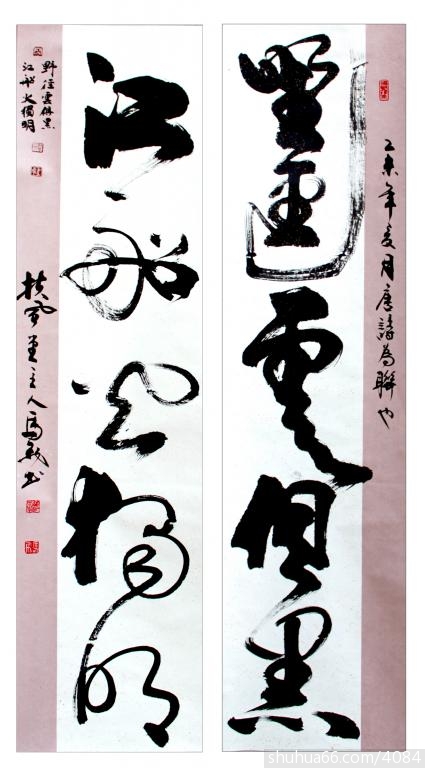 乙未年夏月唐詩為聯也
野逕雲俱黑
江船火獨明
野徑雲俱黑
江船火獨明
扶風堂主人馬
shuhua66.com/4084